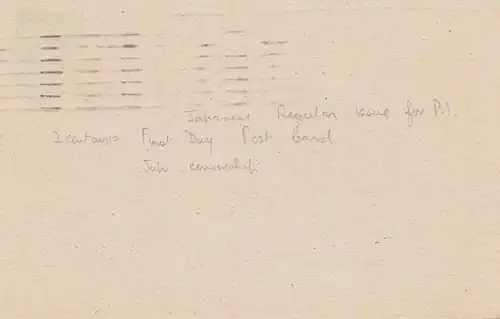 Japanese Regular Issue for P.I.
2 centavos First Day Post Card
Jap. censorship